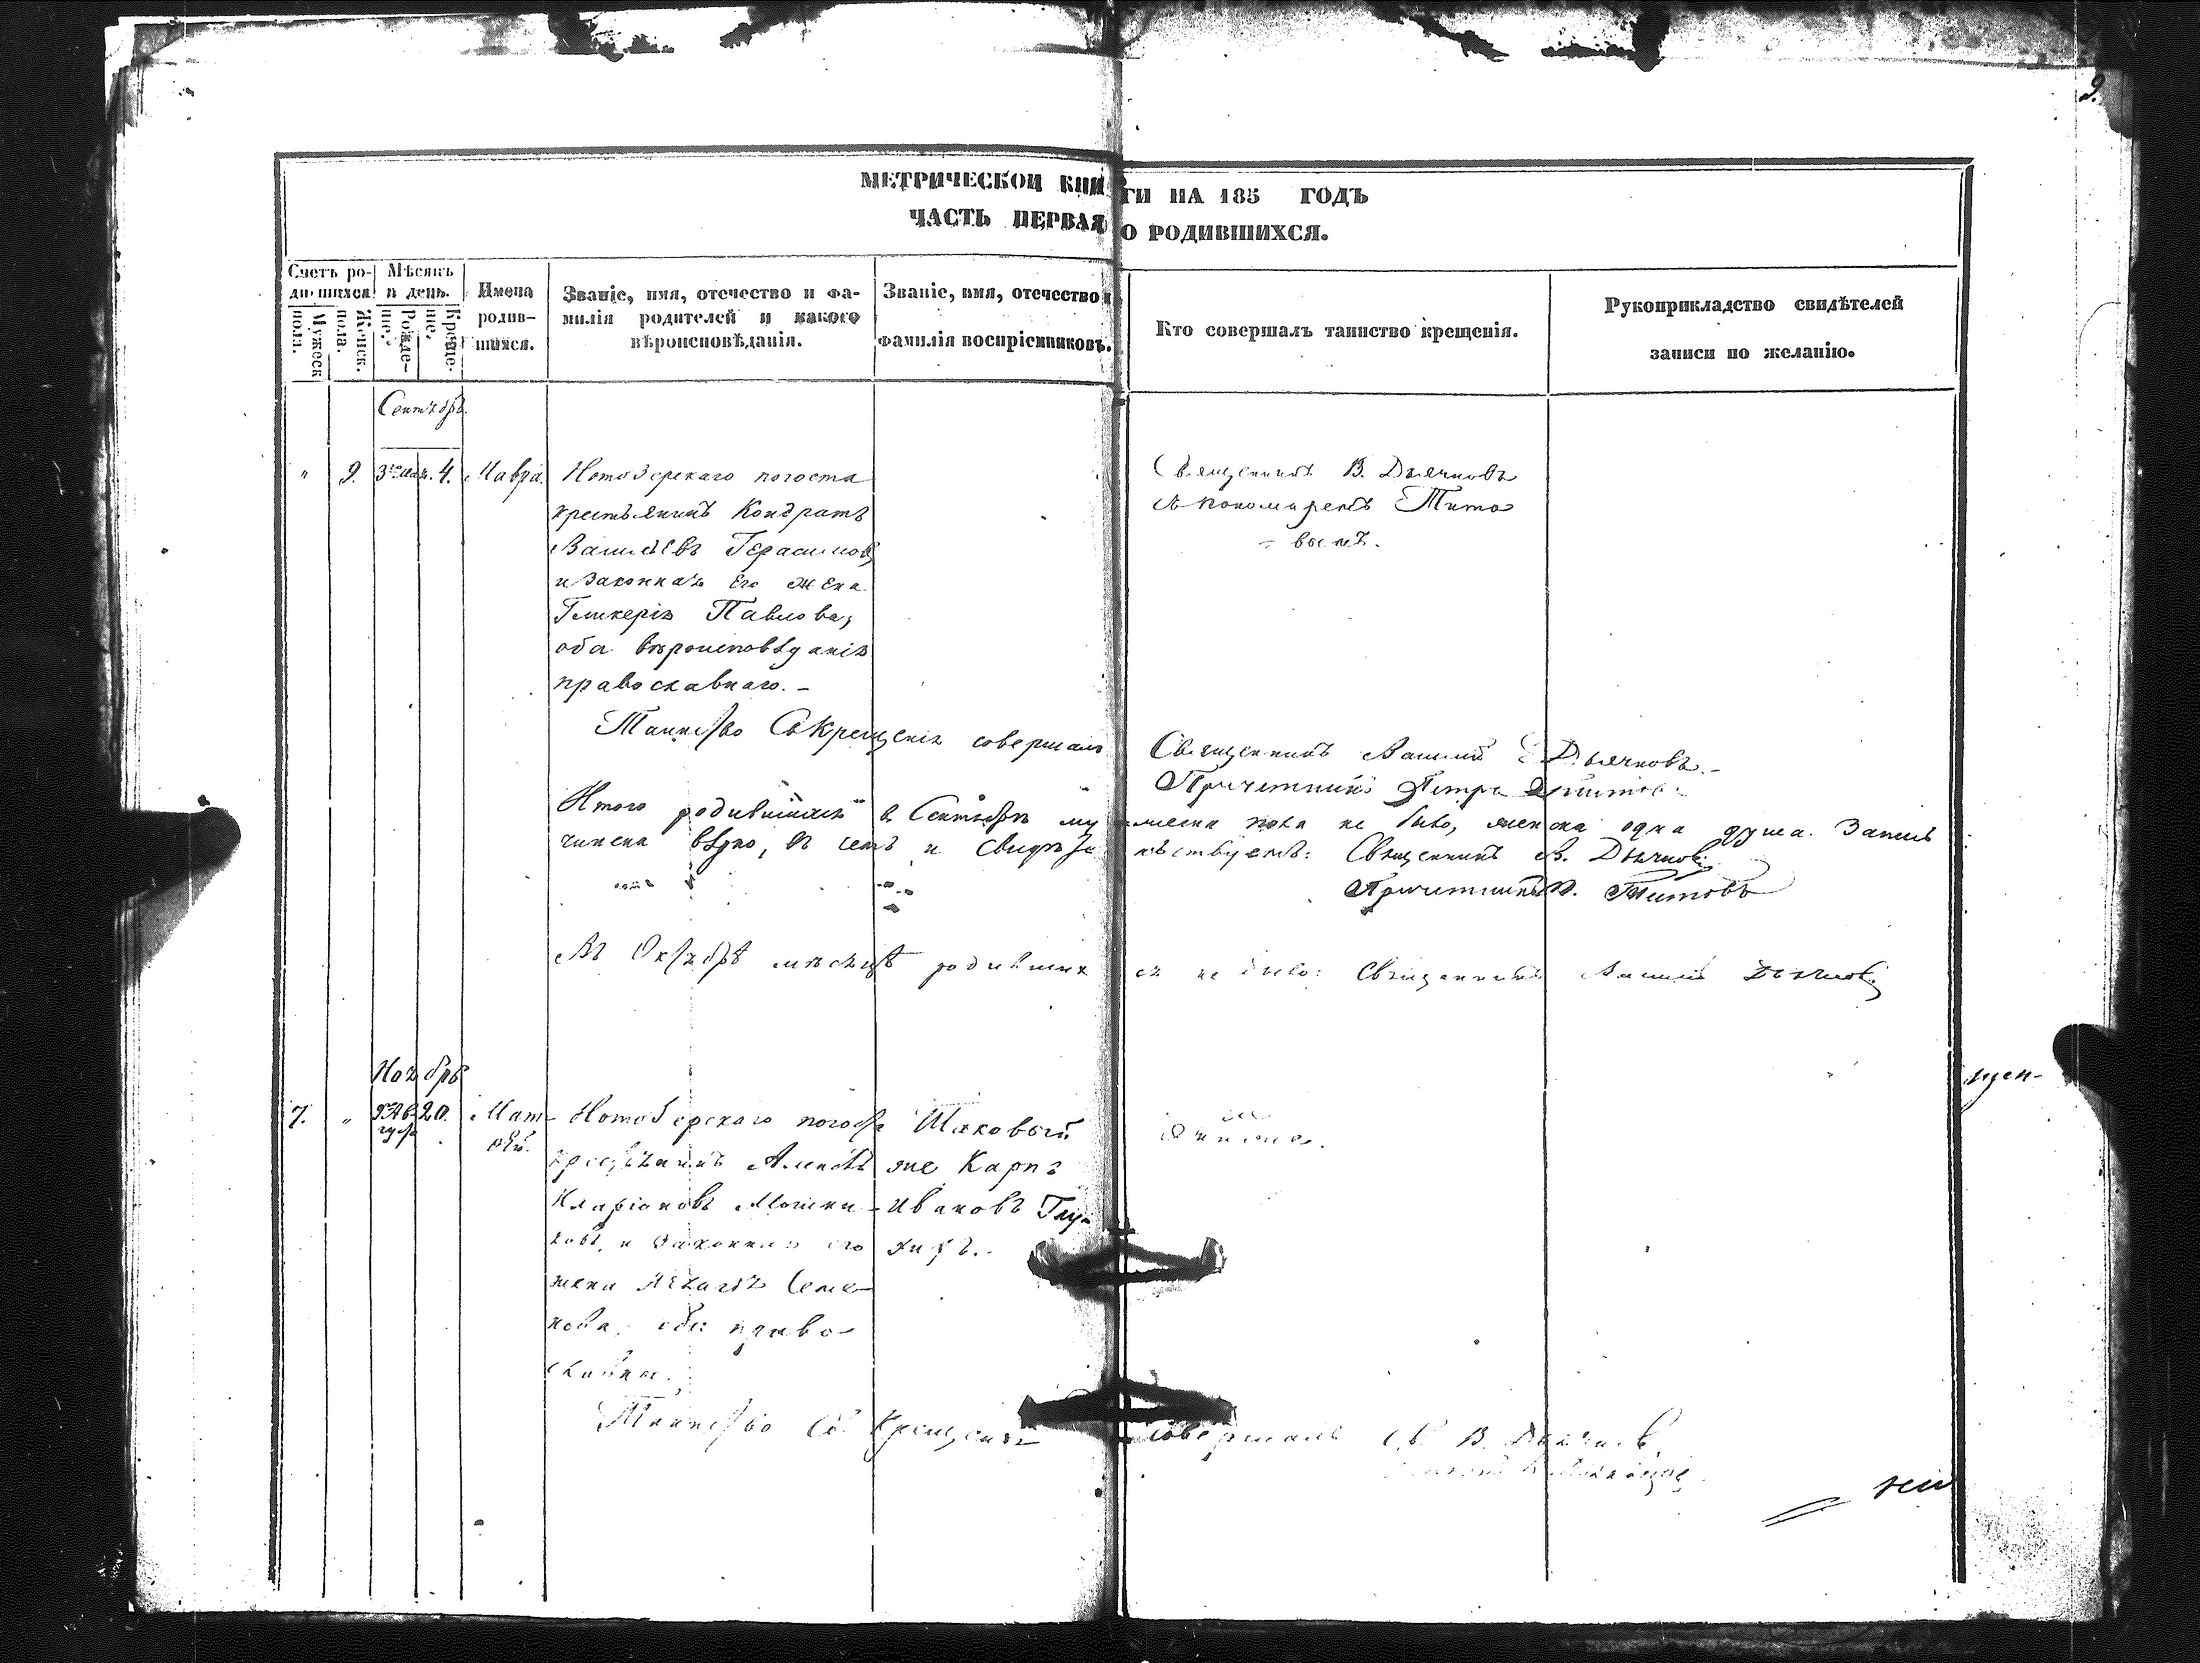 9.
МЕТРИЧЕСКОЙ КНИГИ НА 185 ГОДЪ
ЧАСТЬ ПЕРВАЯ О РОДИВШИХСЯ.
Счетъ родившихся.
Мужеск. пола.
Женск. пола.
Мѣсяцъ и день.
Рожденіе.
Крещеніе.
Имена родив-
шихся.
Званіе, имя, отечество и фа-
милія родителей и какого
вѣроисповѣданія.
Званіе, имя, отечество и
фамилія воспріемниковъ.
Кто совершалъ таинство крещенія.
Рукоприкладство свидѣтелей
записи по желанію.
Сентябрь.
" 9. 4. Мавра.
Нотозерскаго погоста
крестьянинъ Кондратъ
Василіевъ Герасимовъ
и законная его жена
Гликерія Павлова,
оба вѣроисповѣданія
православнаго. -
Священникъ В. Дьячковъ
съ пономаремъ Тито
- вымъ.
Таинство Св. Крещенія совершалъ Священникъ Василій Дьячковъ. -
Причетникъ Петръ
Итого родившихся въ Сентябрѣ мужеска пола не было, женска одна душа. Запись
чинена вѣрно, въ чемъ и свидѣтельствуемъ: Священникъ В. Дьячковъ
Причетникъ П. Титовъ
Въ Октябрѣ мѣсяцѣ родившихся не было: Священникъ Василій Дьячковъ
Ноябрь
7. " 9 Авгу
ста
20. Мат-
ѳей.
Нотозерскаго погоста
крестьянинъ Алексѣй
Иларіоновъ Мошни-
ковъ, и законная его
жена Семе-
нова, оба право-
славные.
Карпъ
Ивановъ
Таинство Св. Крещенія совершалъ Св. В. Дьячковъ.
щен-